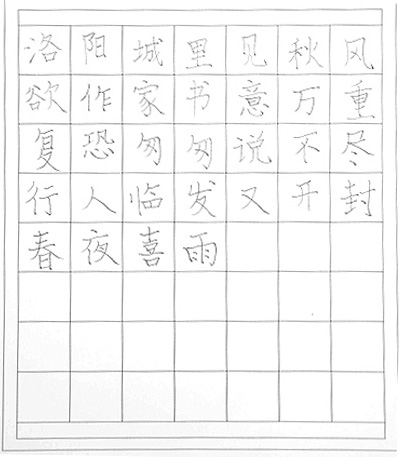 洛阳城里见秋风
欲作家书意万重
复恐匆匆说不尽
行人临发又开封
春夜喜雨